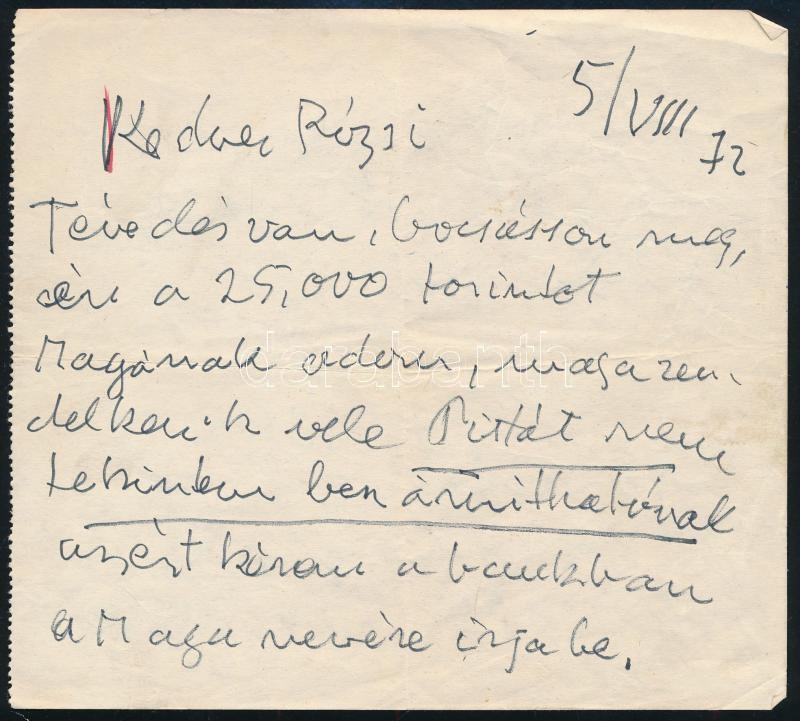 5/VIII 72
Kedves Rózsi
Tévedés van, bocsásson meg,
én a 25,000 forintot
Magának adom, maga ren-
delkezik vele Pittát nem
tekintem beszámithatónak
azért kérem a bankban
a Maga nevére irja be.
darabanth